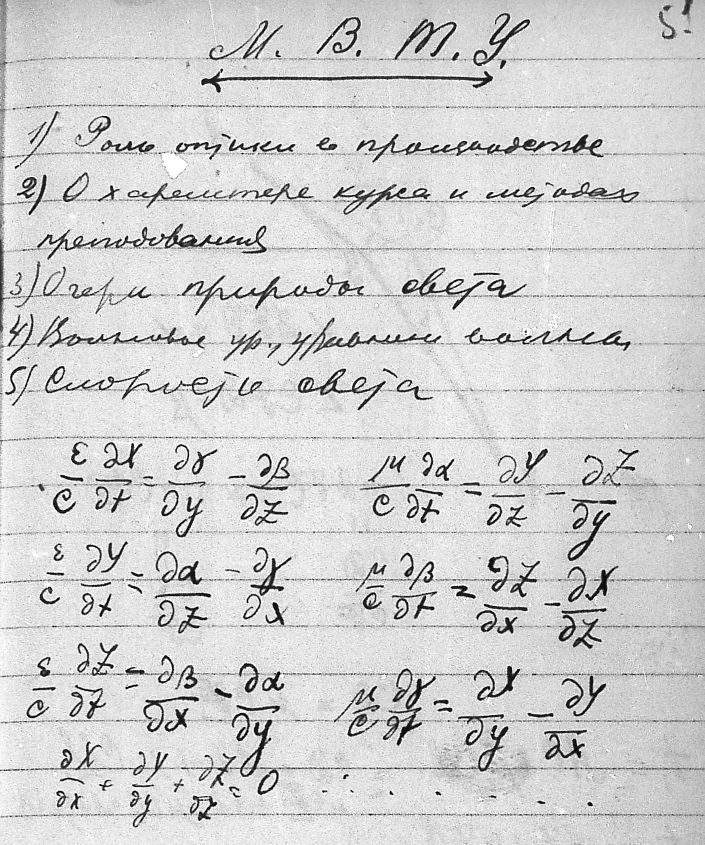 5!
М. В. Т. У.
1) Роль оптики в производстве
2) О характере курса и методах
преподования
3) Очерк природы света
4) Волновое ур., уравнение волны,
5) Скорость света
ε/c ∂X/∂t = ∂γ/∂y − ∂β/∂Z    μ/c ∂α/∂t = ∂Y/∂z − ∂Z/∂y
ε/c ∂Y/∂t = ∂α/∂Z − ∂γ/∂x    μ/c ∂β/∂t = ∂Z/∂x − ∂X/∂Z
ε/c ∂Z/∂t = ∂β/∂x − ∂α/∂y    μ/c ∂γ/∂t = ∂X/∂y − ∂Y/∂x
∂X/∂x + ∂Y/∂y + ∂Z/∂z = 0 . . . . . . . .